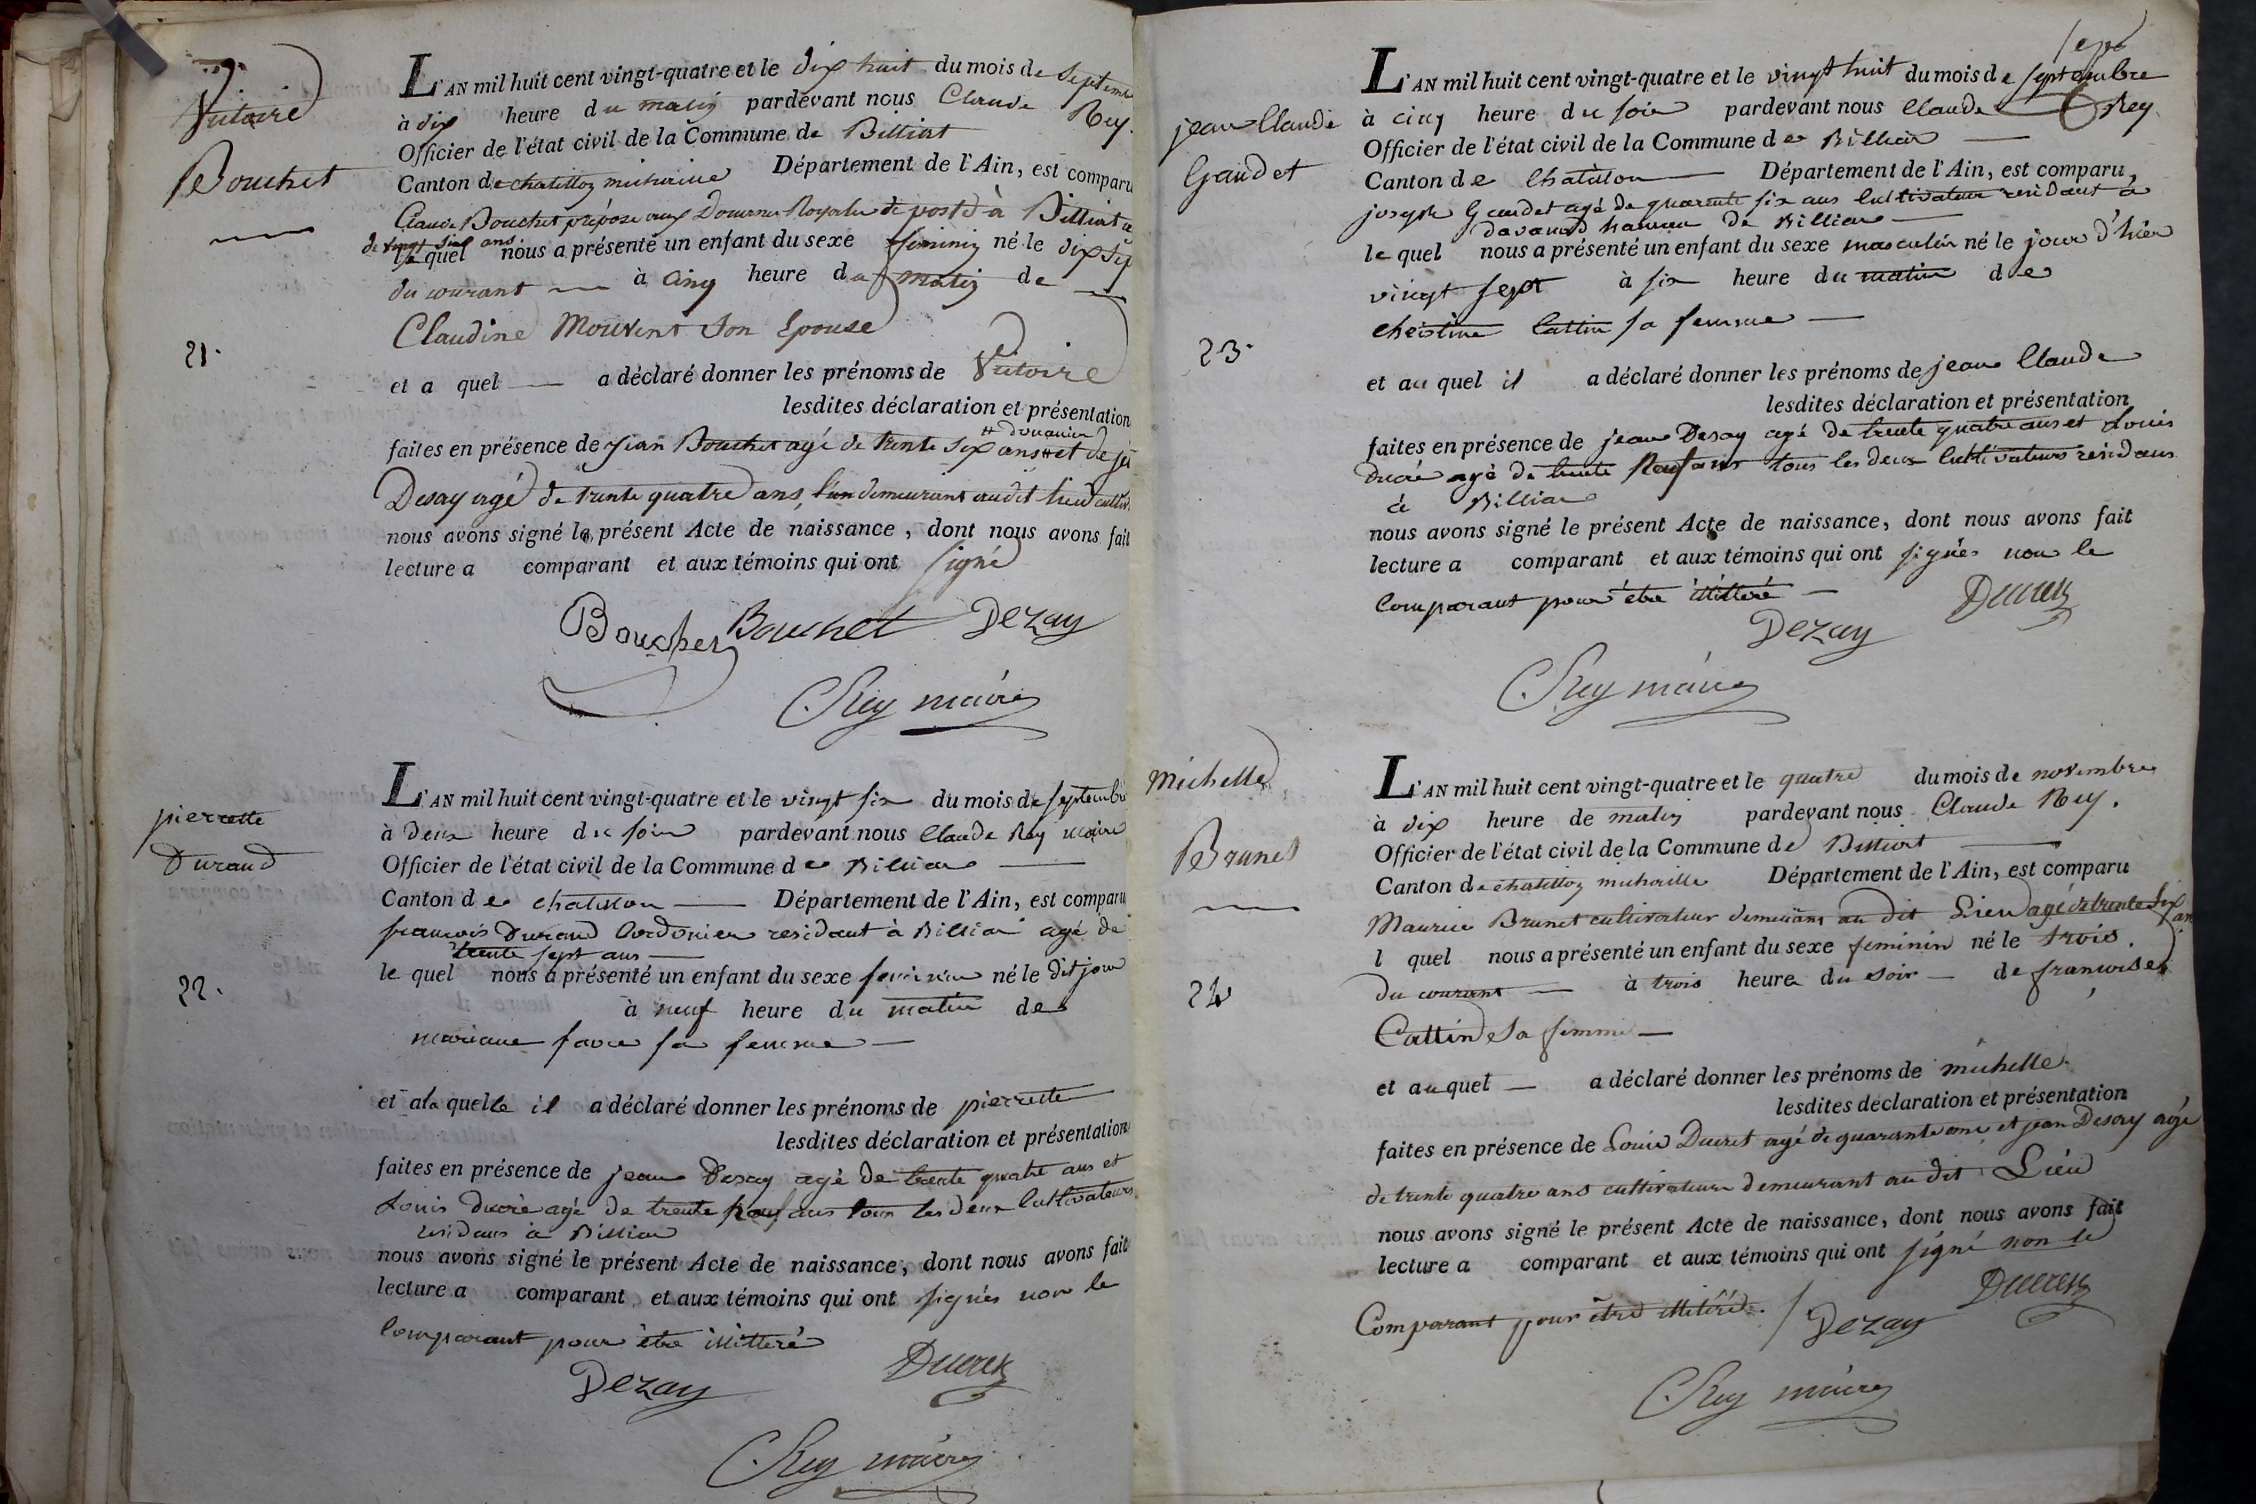 Victoire
Bouchet
21.
L'AN mil huit cent vingt-quatre et le dix huit du mois de Septem
à dix heure du matin pardevant nous Claude Rey.
Officier de l'état civil de la Commune de Billiat
Canton de chatillon michaille Département de l'Ain, est comparu
Claude Bouchet préposé aux Douanes Royales de poste à Billiat
de vingt ans
le quel nous a présenté un enfant du sexe feminin né le dix sep
du courant à cinq heure du matin de
Claudine Mouvent son Epouse
et a quel a déclaré donner les prénoms de Victoire
lesdites déclaration et présentation
# douanier
faites en présence de jean Bouchet agé de trente six ans # et de
Desay agé de trente quatre ans, l'un demeurant audit lieu
nous avons signé le présent Acte de naissance, dont nous avons fait
lecture a comparant et aux témoins qui ont signé
Bouchet Bouchet Dezay
C Rey maire
pierrette
Durand
22.
L'AN mil huit cent vingt-quatre et le vingt six du mois de septembre
à deux heure du soir pardevant nous Claude Rey maire
Officier de l'état civil de la Commune de Billiat
Canton de chatillon Département de l'Ain, est comparu
francois Durand Cordonier residant à Billiat agé de
trente sept ans
le quel nous a présenté un enfant du sexe feminin né le dit jour
à neuf heure du matin de
mariane favre sa femme
et a la quelle il a déclaré donner les prénoms de pierrette
lesdites déclaration et présentation
faites en présence de jean Desay agé de trente quatre ans et
Louis ducré agé de trente neuf ans tous les deux Cultivateurs
residans à Billiat
nous avons signé le présent Acte de naissance, dont nous avons fait
lecture a comparant et aux témoins qui ont signés non le
Comparant pour être illitteré
Dezay Ducret
C Rey maire
jean Claude
Gaudet
23.
L'AN mil huit cent vingt-quatre et le vingt huit du mois de septembre
à cinq heure du soir pardevant nous Claude Rey
Officier de l'état civil de la Commune de Billiat
Canton de Chatillon Département de l'Ain, est comparu,
joseph Gaudet agé de quarente six ans Cultivateur residant à
davanod hameau de Billiat
le quel nous a présenté un enfant du sexe masculin né le jour d'hier
vingt sept à six heure du matin de
christine Cattin sa femme
et au quel il a déclaré donner les prénoms de jean Claude
lesdites déclaration et présentation
faites en présence de jean Desay agé de trente quatre ans et Louis
ducré agé de trente neuf ans tous les deux Cultivateurs residans
à Billiat
nous avons signé le présent Acte de naissance, dont nous avons fait
lecture a comparant et aux témoins qui ont signés non le
Comparant pour être illitteré
Dezay Ducret
C Rey maire
Michelle
Brunet
24
L'AN mil huit cent vingt-quatre et le quatre du mois de novembre
à dix heure de matin pardevant nous Claude Rey.
Officier de l'état civil de la Commune de Billiat
Canton de chatillon michaille Département de l'Ain, est comparu
Maurice Brunet cultivateur demeurant au dit Lieu agé de trente six ans
l quel nous a présenté un enfant du sexe feminin né le trois.
du courant à trois heure du soir de francoise
Cattin sa femme
et au quel a déclaré donner les prénoms de michelle.
lesdites déclaration et présentation
faites en présence de Louis Ducret agé de quarante ans et jean Desay agé
de trente quatre ans cultivateurs demeurant au dit Lieu
nous avons signé le présent Acte de naissance, dont nous avons fait
lecture a comparant et aux témoins qui ont signé non le
Comparant pour être illitéré.
Dezay Ducret
C Rey maire